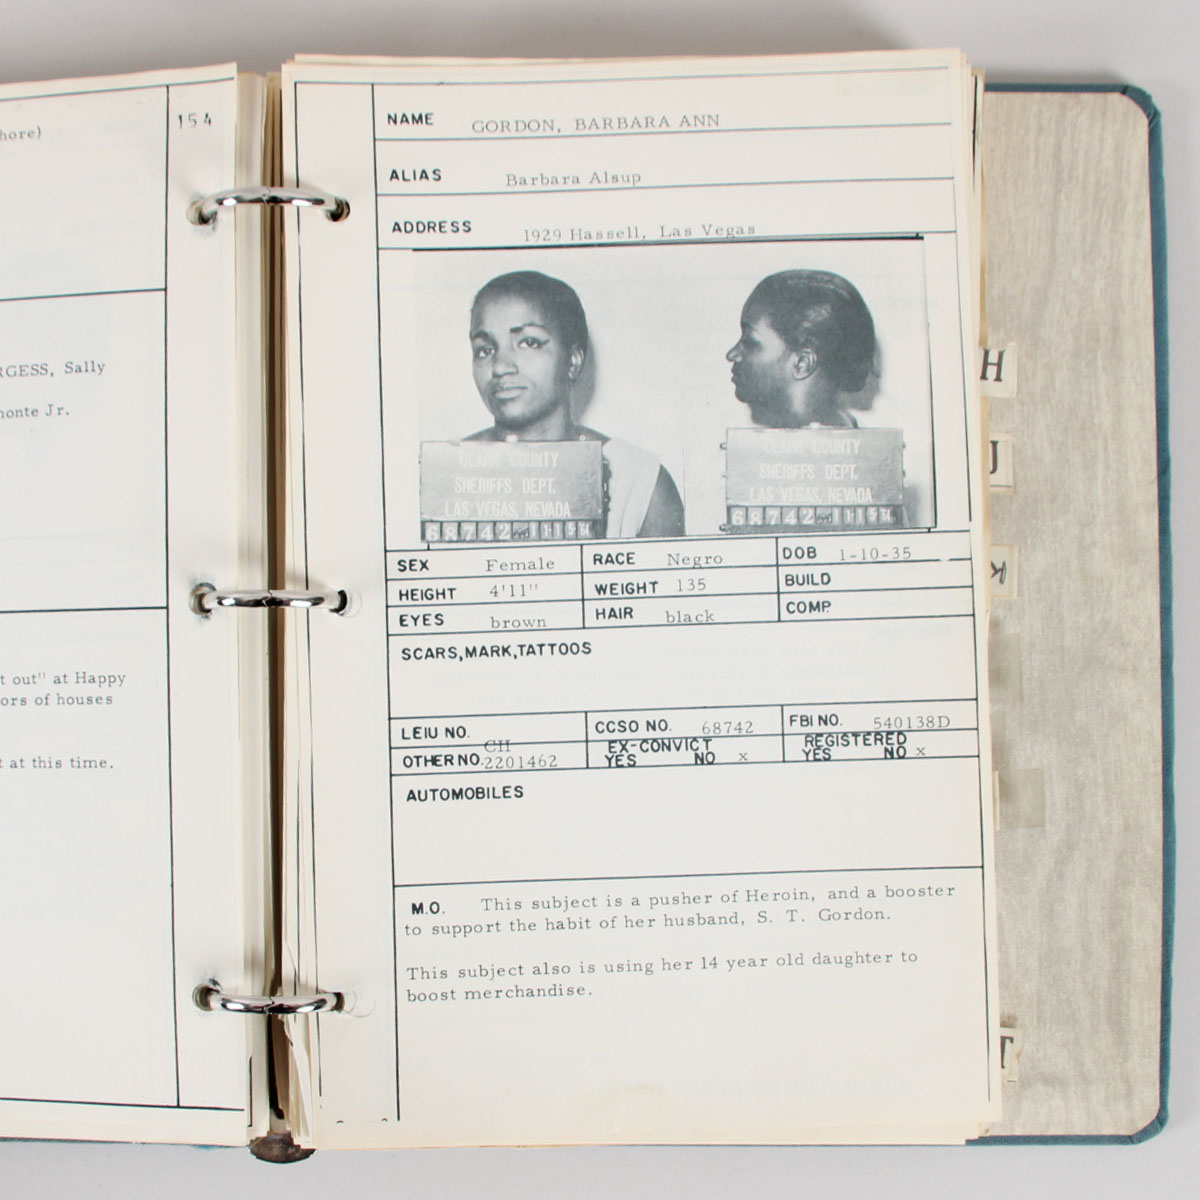 154
hore)
RGESS, Sally
monte Jr.
t out" at Happy
ors of houses
t at this time.
NAME GORDON, BARBARA ANN
ALIAS Barbara Alsup
ADDRESS 1929 Hassell, Las Vegas
CLARK COUNTY
SHERIFFS DEPT.
LAS VEGAS, NEVADA
68742
CLARK COUNTY
SHERIFFS DEPT.
LAS VEGAS, NEVADA
68742
SEX Female RACE Negro DOB 1-10-35
HEIGHT 4'11" WEIGHT 135 BUILD
EYES brown HAIR black COMP.
SCARS,MARK,TATTOOS
LEIU NO. CCSO NO. 68742 FBI NO. 540138D
CII EX-CONVICT REGISTERED
OTHER NO. 2201462 YES NO x YES NO x
AUTOMOBILES
M.O. This subject is a pusher of Heroin, and a booster
to support the habit of her husband, S. T. Gordon.
This subject also is using her 14 year old daughter to
boost merchandise.
H
J
K
T